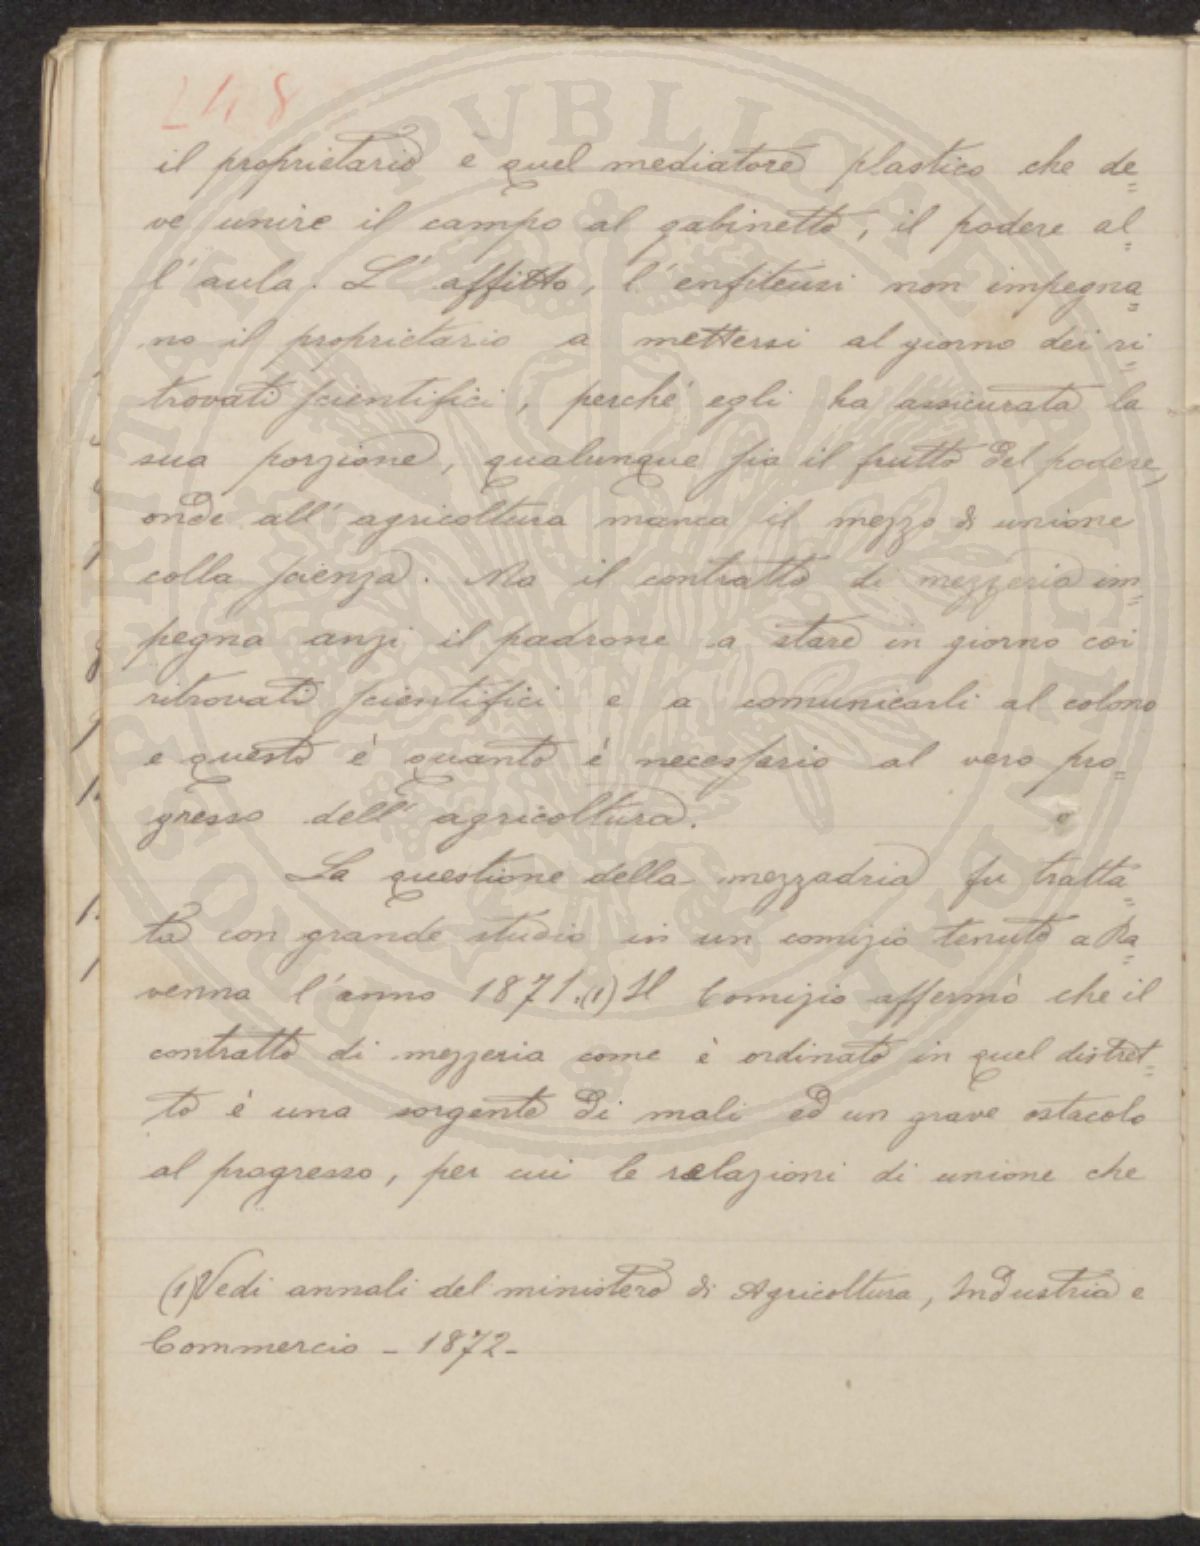 248
il proprietario è quel mediatore plastico che de=
ve unire il campo al gabinetto, il podere al=
l'aula. L'affitto, l'enfiteusi non impegna=
no il proprietario a mettersi al giorno dei ri=
trovati scientifici, perché egli ha assicurata la
sua porzione, qualunque sia il frutto del podere,
onde all'agricoltura manca il mezzo di unione
colla scienza. Ma il contratto di mezzeria im=
pegna anzi il padrone a stare in giorno coi
ritrovati scientifici e a comunicarli al colono
e questo è quanto è necessario al vero pro=
gresso dell'agricoltura.
La questione della mezzadria fu tratta=
ta con grande studio in un comizio tenuto a Ra=
venna l'anno 1871.(1) Il Comizio affermò che il
contratto di mezzeria come è ordinato in quel distret=
to è una sorgente di mali ed un grave ostacolo
al progresso, per cui le relazioni di unione che
(1) Vedi annali del ministero di Agricoltura, Industria e
Commercio - 1872-